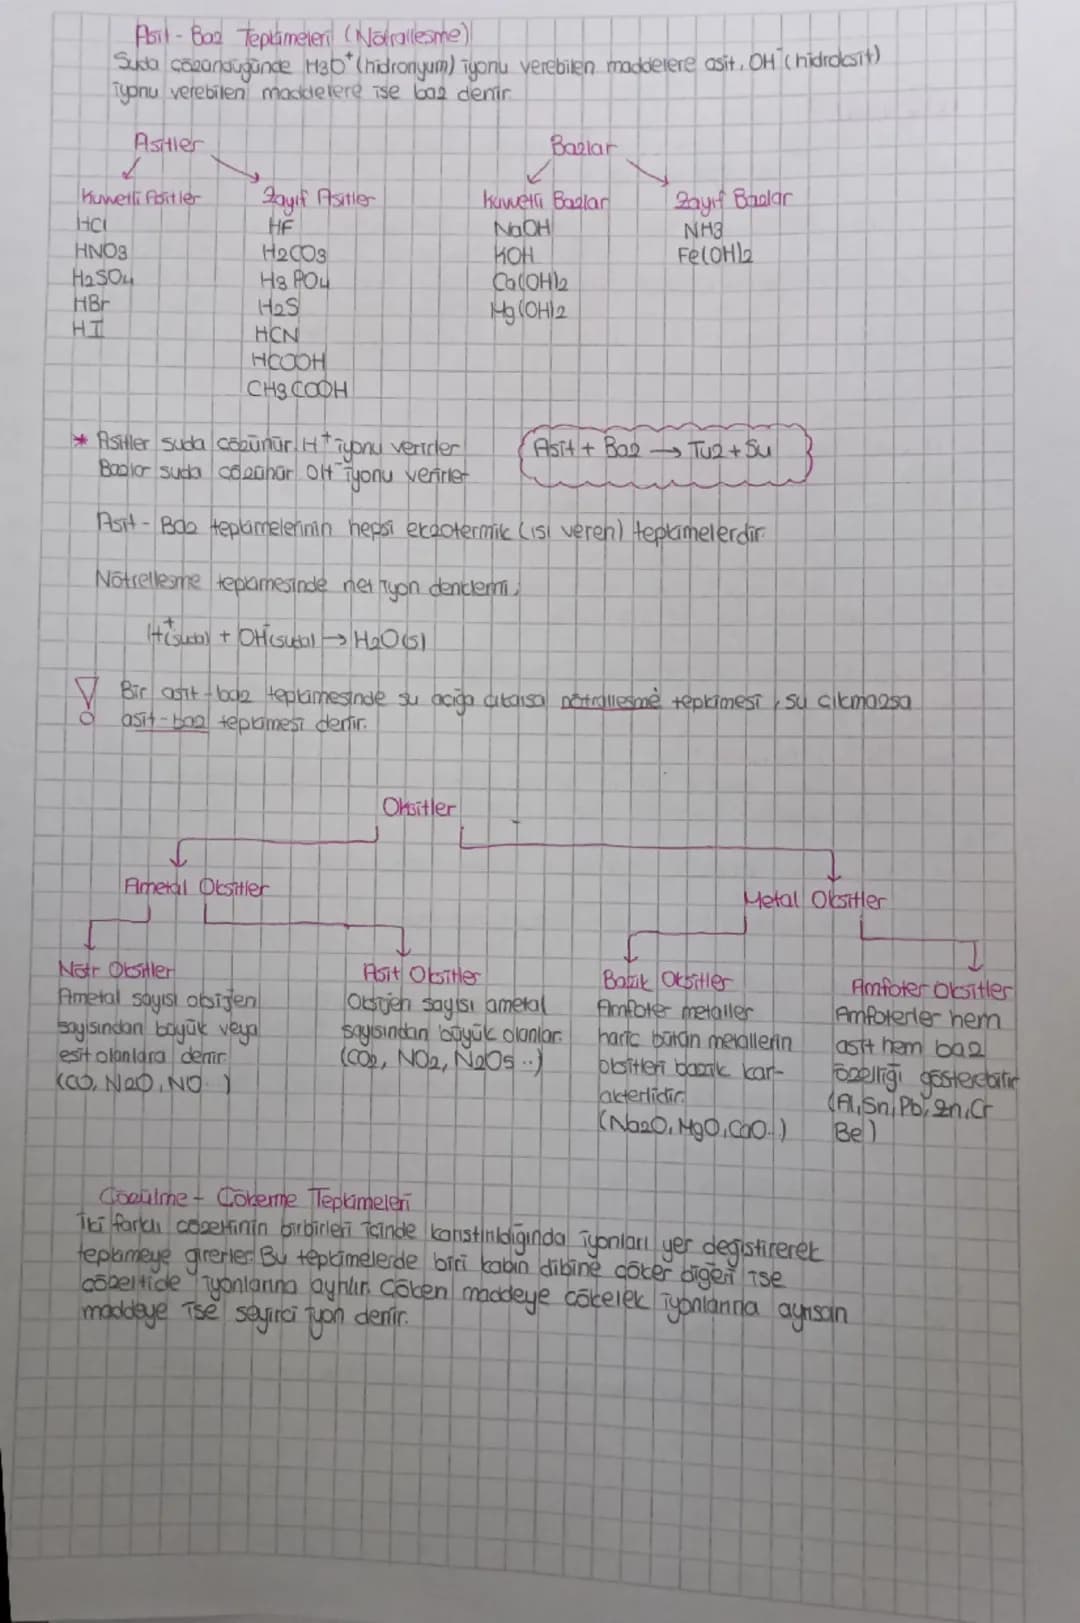 Asit - Baz Tepkimeleri (Nötralleşme)
Suda çözündüğünde H3O+ (hidronyum) iyonu verebilen maddelere asit, OH- (hidroksit)
iyonu verebilen maddelere ise baz denir.
Asitler
Bazlar
Kuvvetli Asitler
Zayıf Asitler
Kuvvetli Bazlar
Zayıf Bazlar
HCl
HF
NaOH
NH3
HNO3
H2CO3
KOH
Fe(OH)2
H2SO4
H3PO4
Ca(OH)2
HBr
H2S
Mg(OH)2
HI
HCN
HCOOH
CH3COOH
* Asitler suda çözünür. H+ iyonu verirler
Bazlar suda çözünür OH- iyonu verirler
Asit + Baz → Tuz + Su
Asit - Baz tepkimelerinin hepsi ekzotermik (ısı veren) tepkimelerdir.
Nötrelleşme tepkimesinde net iyon denklemi;
H+(suda) + OH-(suda) → H2O(s)
! Bir asit-baz tepkimesinde su açığa çıkarsa nötralleşme tepkimesi, su çıkmazsa
asit-baz tepkimesi denir.
Oksitler
Ametal Oksitler
Metal Oksitler
Nötr Oksitler
Ametal sayısı oksijen
sayısından büyük veya
eşit olanlara denir.
(CO, N2O, NO..)
Asit Oksitler
Oksijen sayısı ametal
sayısından büyük olanlar.
(CO2, NO2, N2O5..)
Bazik Oksitler
Amfoter metaller
hariç bütün metallerin
oksitleri bazik kar-
akterlidir.
(Na2O, MgO, CaO..)
Amfoter Oksitler
Amfoterler hem
asit hem baz
özelliği gösterebilir
(Al, Sn, Pb, Zn, Cr
Be)
Çözülme - Çökerme Tepkimeleri
İki farklı çözeltinin birbirleri içinde karıştırıldığında iyonları yer değiştirerek
tepkimeye girerler. Bu tepkimelerde biri kabın dibine çöker diğeri ise
çözeltide iyonlarına ayrılır. Çöken maddeye çökelek iyonlarına ayrışan
maddeye ise seyirci iyon denir.